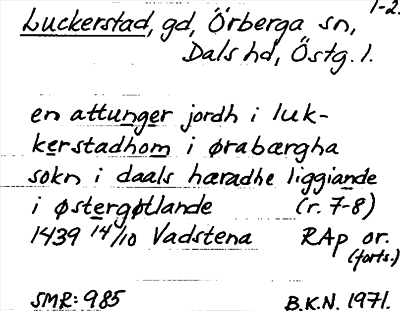 1-2.
Luckerstad, gd, Örberga sn,
Dals hd, Östg. l.
en attunger jordh i luk-
kerstadhom i ørabærgha
sokn i daals hæradhe liggiande
i østergøtlande (r. 7-8)
1439 14/10 Vadstena RAp or.
(forts.)
SMR: 985 B.K.N. 1971.